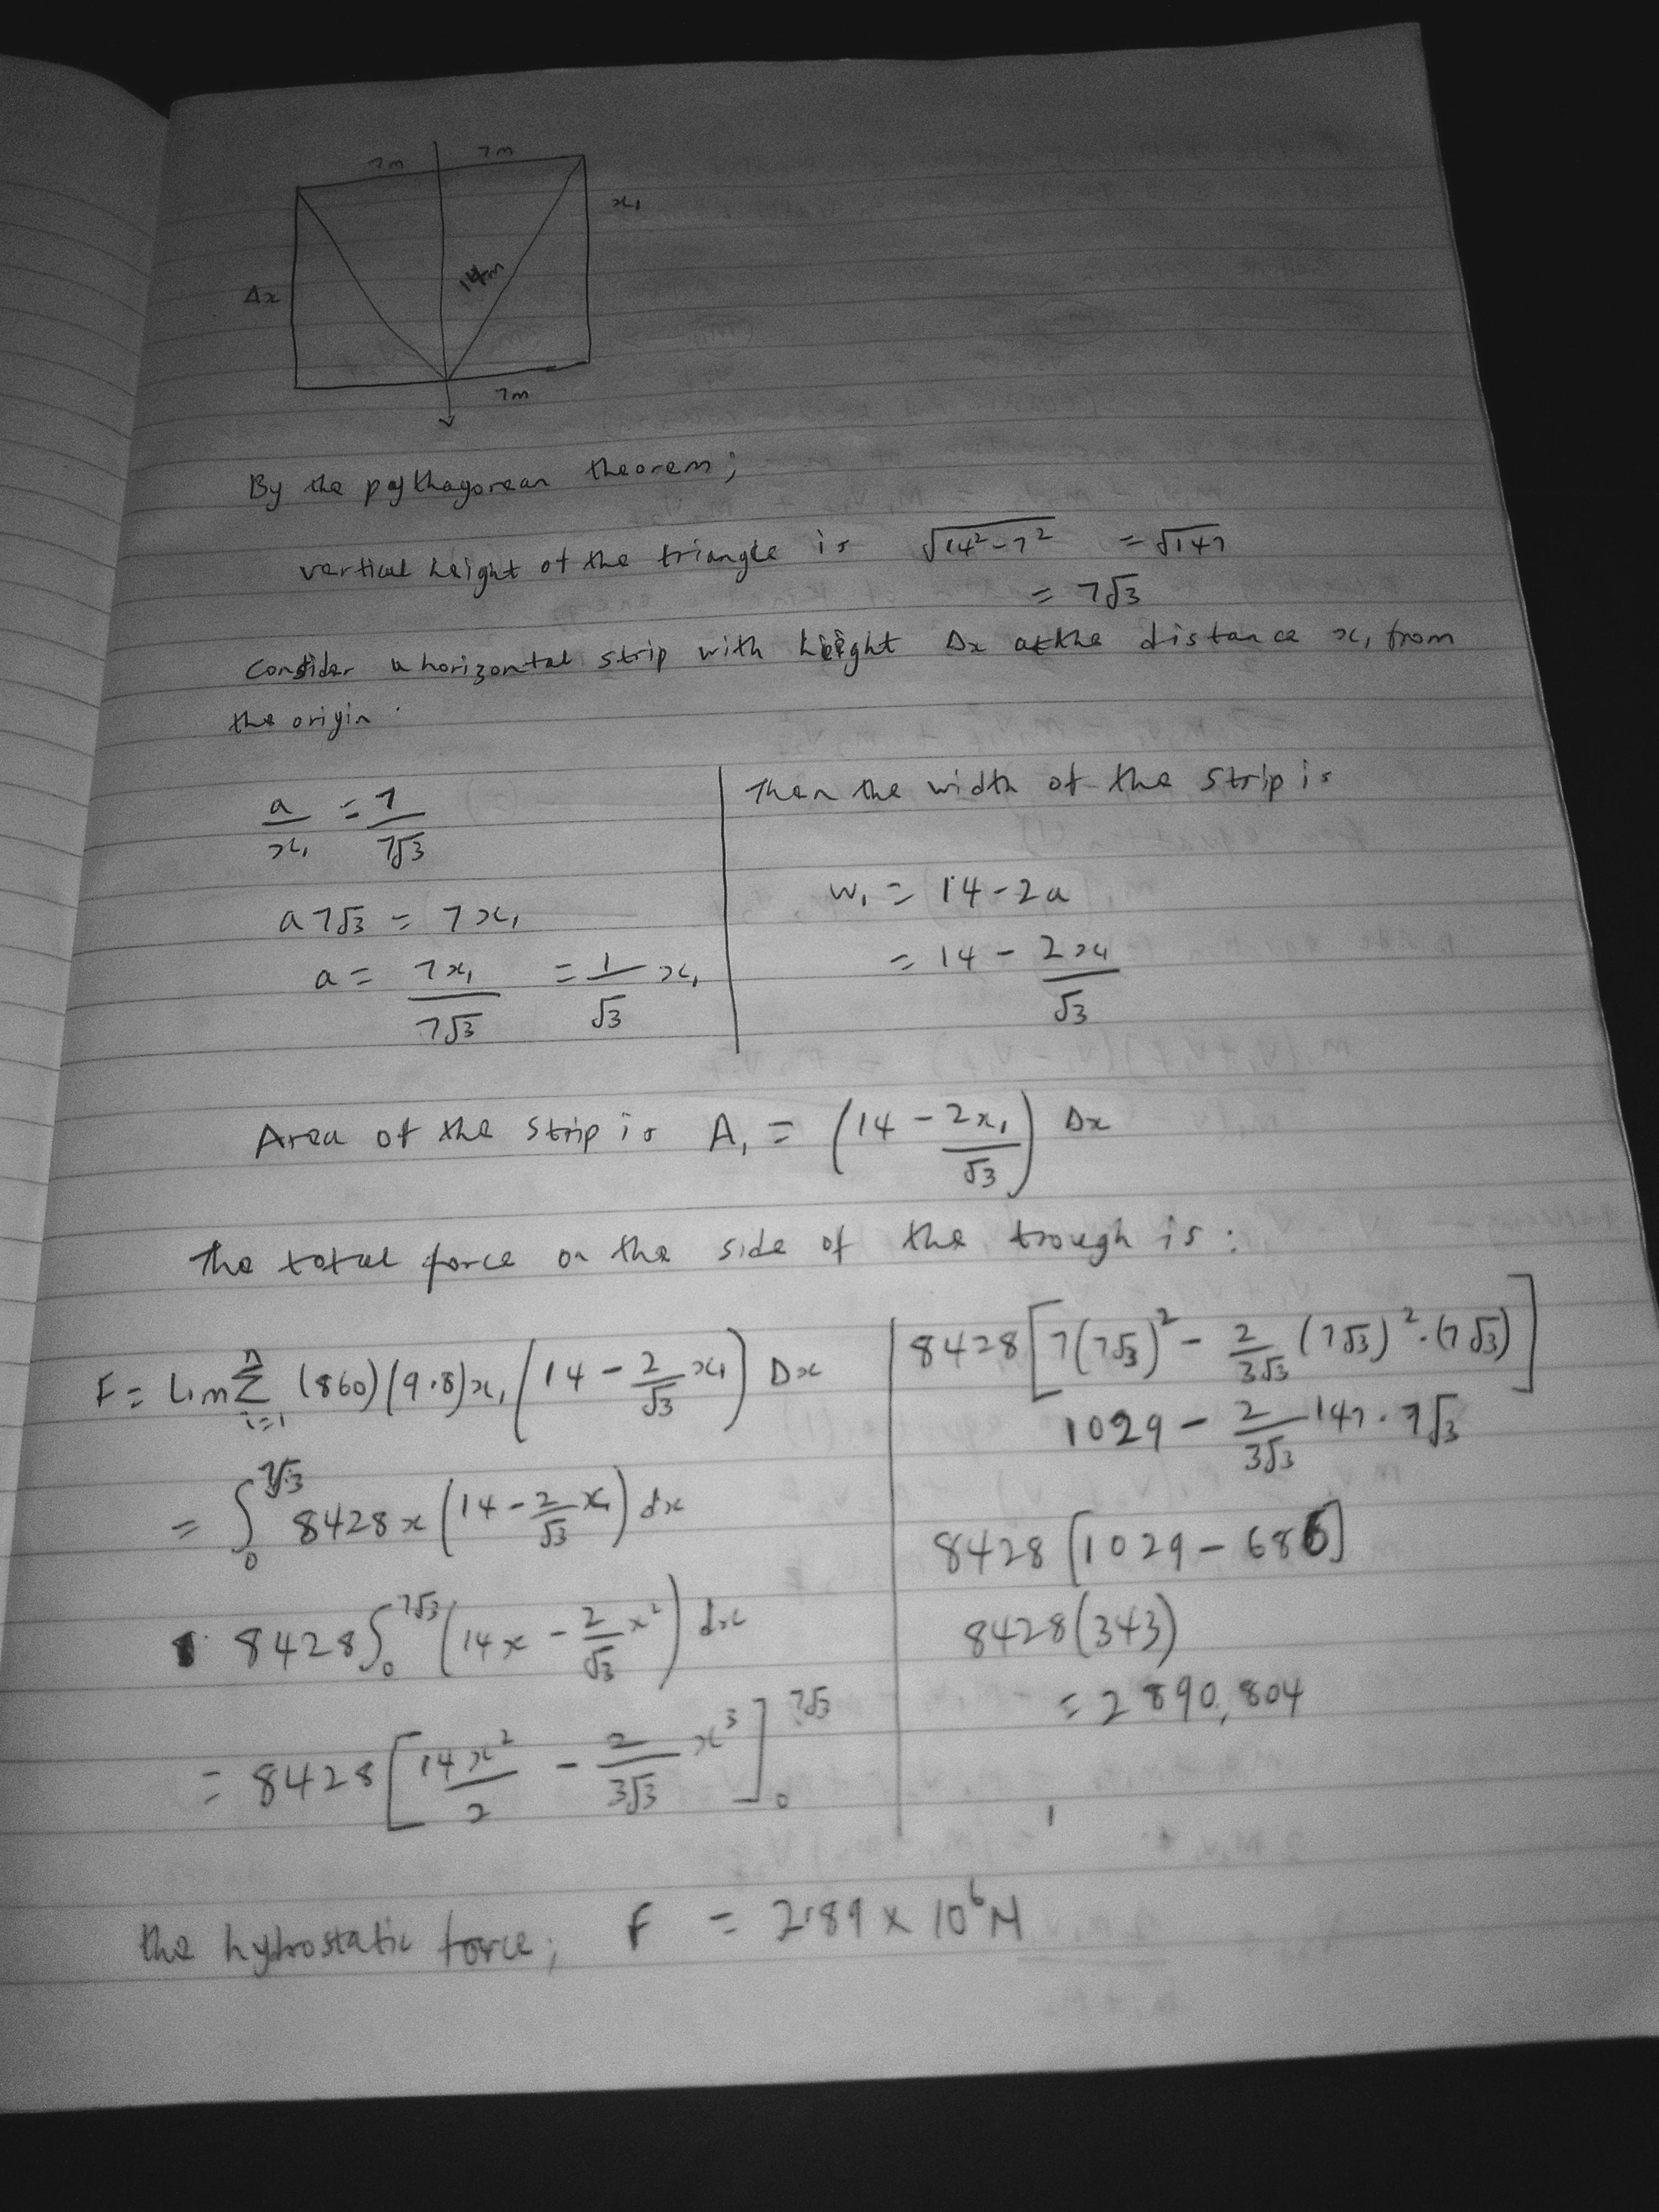 7m 7m
x₁
14m
Δx
7m
By the pythagorean theorem;
vertical height of the triangle is √(14² - 7²) = √147
= 7√3
consider a horizontal strip with height Δx at the distance x₁ from
the origin.
a/x₁ = 7/7√3
a7√3 = 7x₁
a = 7x₁/7√3 = 1/√3 x₁
Then the width of the strip is
w₁ = 14 - 2a
= 14 - 2x₁/√3
Area of the strip is A₁ = (14 - 2x₁/√3) Δx
The total force on the side of the trough is:
F = Lim Σ_{i=1}^{n} (860)(9.8)x₁ (14 - 2/√3 x₁) Δx
= ∫₀^{7√3} 8428x (14 - 2/√3 x₁) dx
8428 ∫₀^{7√3} (14x - 2/√3 x²) dx
= 8428 [14x²/2 - 2/3√3 x³]₀^{7√3}
8428 [7(7√3)² - 2/3√3 (7√3)² · (7√3)]
1029 - 2/3√3 147 · 7√3
8428 [1029 - 686]
8428 (343)
= 2890,804
the hydrostatic force; F = 2.89 × 10⁶ N